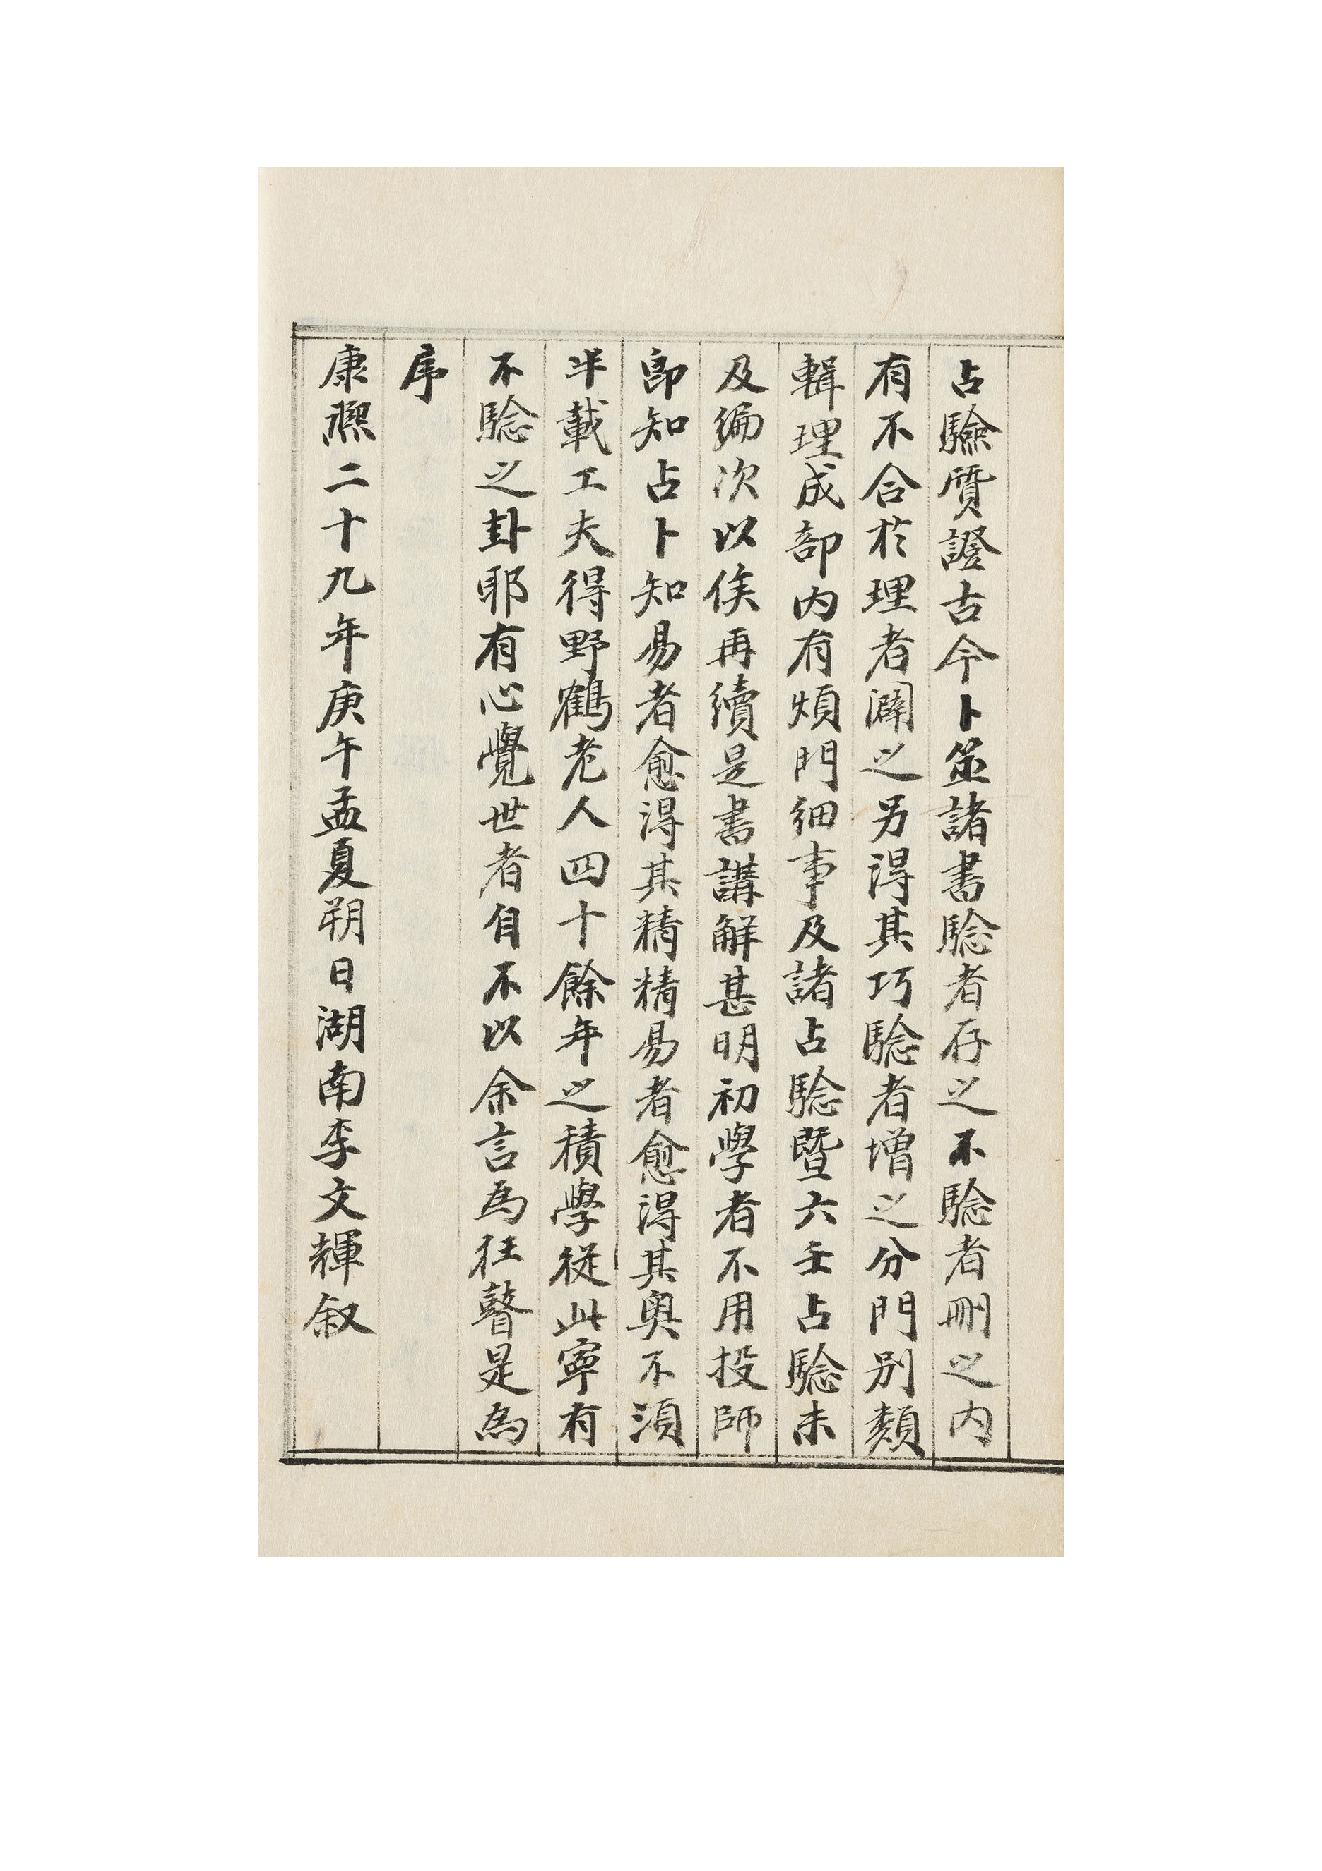 占驗質證古今卜筮諸書騐者存之不騐者刪之內
有不合於理者闢之另得其巧騐者增之分門別類
輯理成部內有煩門細事及諸占騐暨六壬占騐未
及編次以俟再續是書講解甚明初學者不用投師
即知占卜知易者愈得其精精易者愈得其奧不須
半載工夫得野鶴老人四十餘年之積學從此寧有
不騐之卦耶有心覺世者自不以余言為狂瞽是為
序
康熙二十九年庚午孟夏朔日湖南李文輝叙